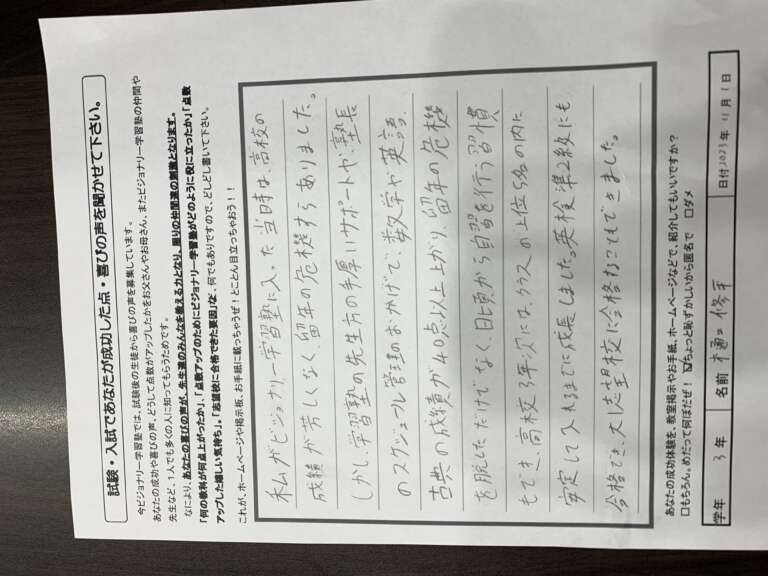 試験・入試であなたが成功した点・喜びの声を聞かせて下さい。
今ビジョナリー学習塾では、試験後の生徒から喜びの声を募集しています。
あなたの成功や喜びの声、どうして点数がアップしたかをお父さんやお母さん、またビジョナリー学習塾の仲間や
先生など、1人でも多くの人に知ってもらうためです。
なにより、あなたの喜びの声が、先生達のみんなを教える力となり、周りの仲間達の刺激となります。
「何の教科が何点上がったか」、「点数アップのためにビジョナリー学習塾がどのように役に立ったか」「点数
アップした嬉しい気持ち」、「志望校に合格できた要因」な、何でもありですので、どしどし書いて下さい。
これが、ホームページや掲示板、お手紙に載っちゃうぜ!とことん目立っちゃおう!!
私がビジョナリー学習塾に入った当時は、高校の
成績が芳しくなく、留年の危機すらありました。
しかし、学習塾の先生方の手厚いサポートや、塾長
のスケジュール管理のおかげで、数学や英語、
古典の成績が40点以上上がり、留年の危機
を脱しただけでなく、日頃から自習を行う習慣
もでき、高校3年次にはクラスの上位5名の内に
安定して入れるまでに成長しました。英検準2級にも
合格でき、大し志望校に合格することもできました。
あなたの成功体験を、教室掲示やお手紙、ホームページなどで、紹介してもいいですか?
□もちろん。めだって何ぼだぜ! ☑ちょっと恥ずかしいから匿名で □ダメ
学年 3年 名前 樋口 修平 日付2023年11月1日